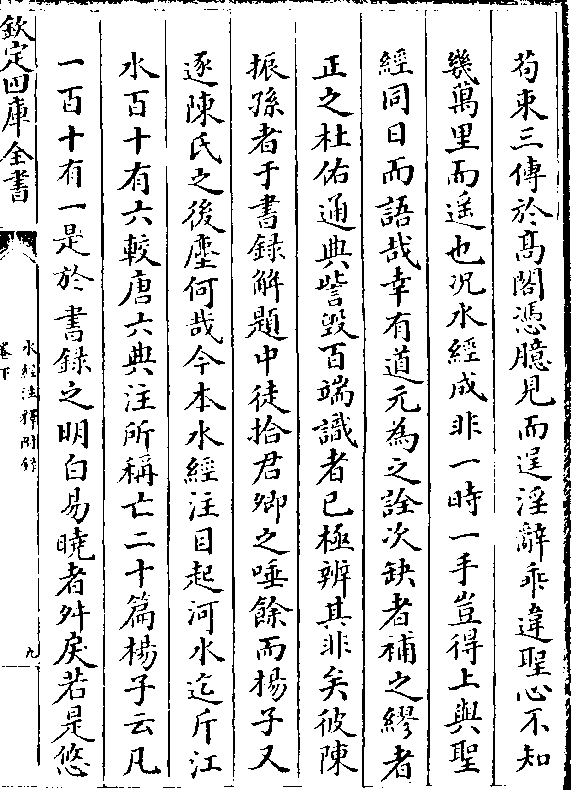 苟束三傳於髙閣憑臆見而逞淫辭乖違聖心不知
幾萬里而遥也况水經成非一時一手豈得上與聖
經同日而語哉幸有道元為之詮次缺者補之繆者
正之杜佑通典訾毀百端識者已極辨其非矣彼陳
振孫者于書録解題中徒拾君卿之唾餘而楊子又
逐陳氏之後塵何哉今本水經注目起河水迄斤江
水百十有六較唐六典注所稱亡二十篇楊子云凡
一百十有一是於書録之明白易曉者舛戾若是悠
欽定四庫全書
水經注釋附録
卷下
九